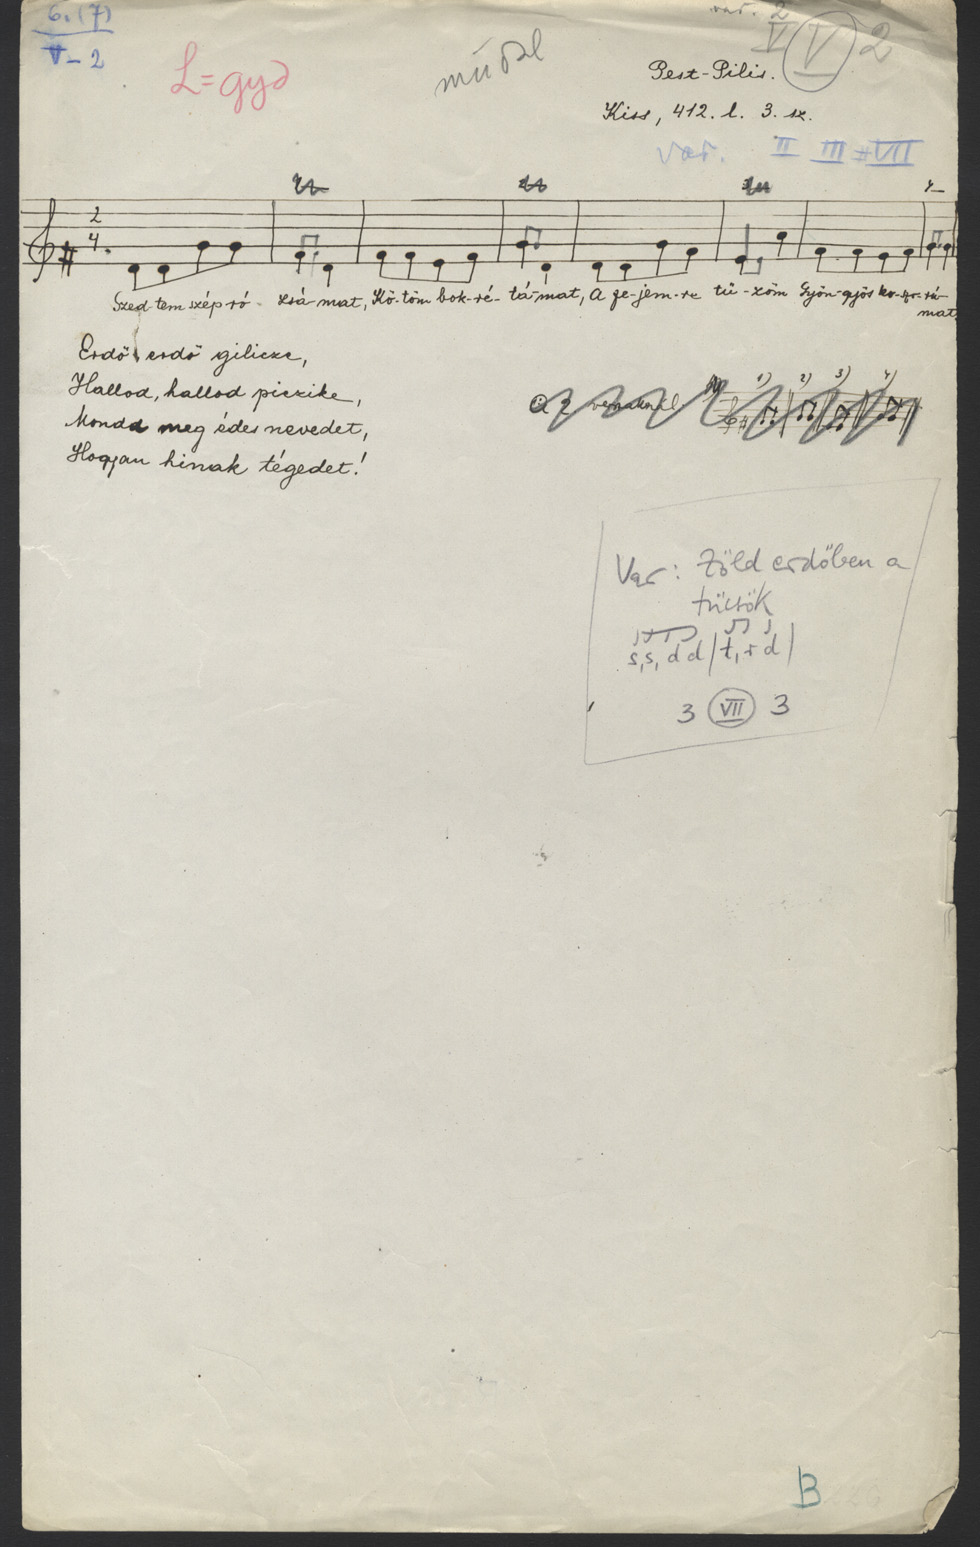 6. (7)
V - 2
L = gyd
műdal
var. 2
V
V 2
Pest-Pilis.
Kiss, 412. l. 3. sz.
var. II III VII
2
4.
Szed-tem szép ró- zsá-mat, Kö-töm bok-ré-tá-mat, A fe-jem-re tű-zöm Gyön-gyös ko-szo-rú-
mat.
Erdő, erdő gilicze,
Hallod, hallod piczike,
Mondd meg édes nevedet,
Hogyan hinak tégedet!
A 2.
1) 2) 3) 4)
Var: Zöld erdőben a
tücsök
s, s, d d | t, r d |
3 VII 3
B